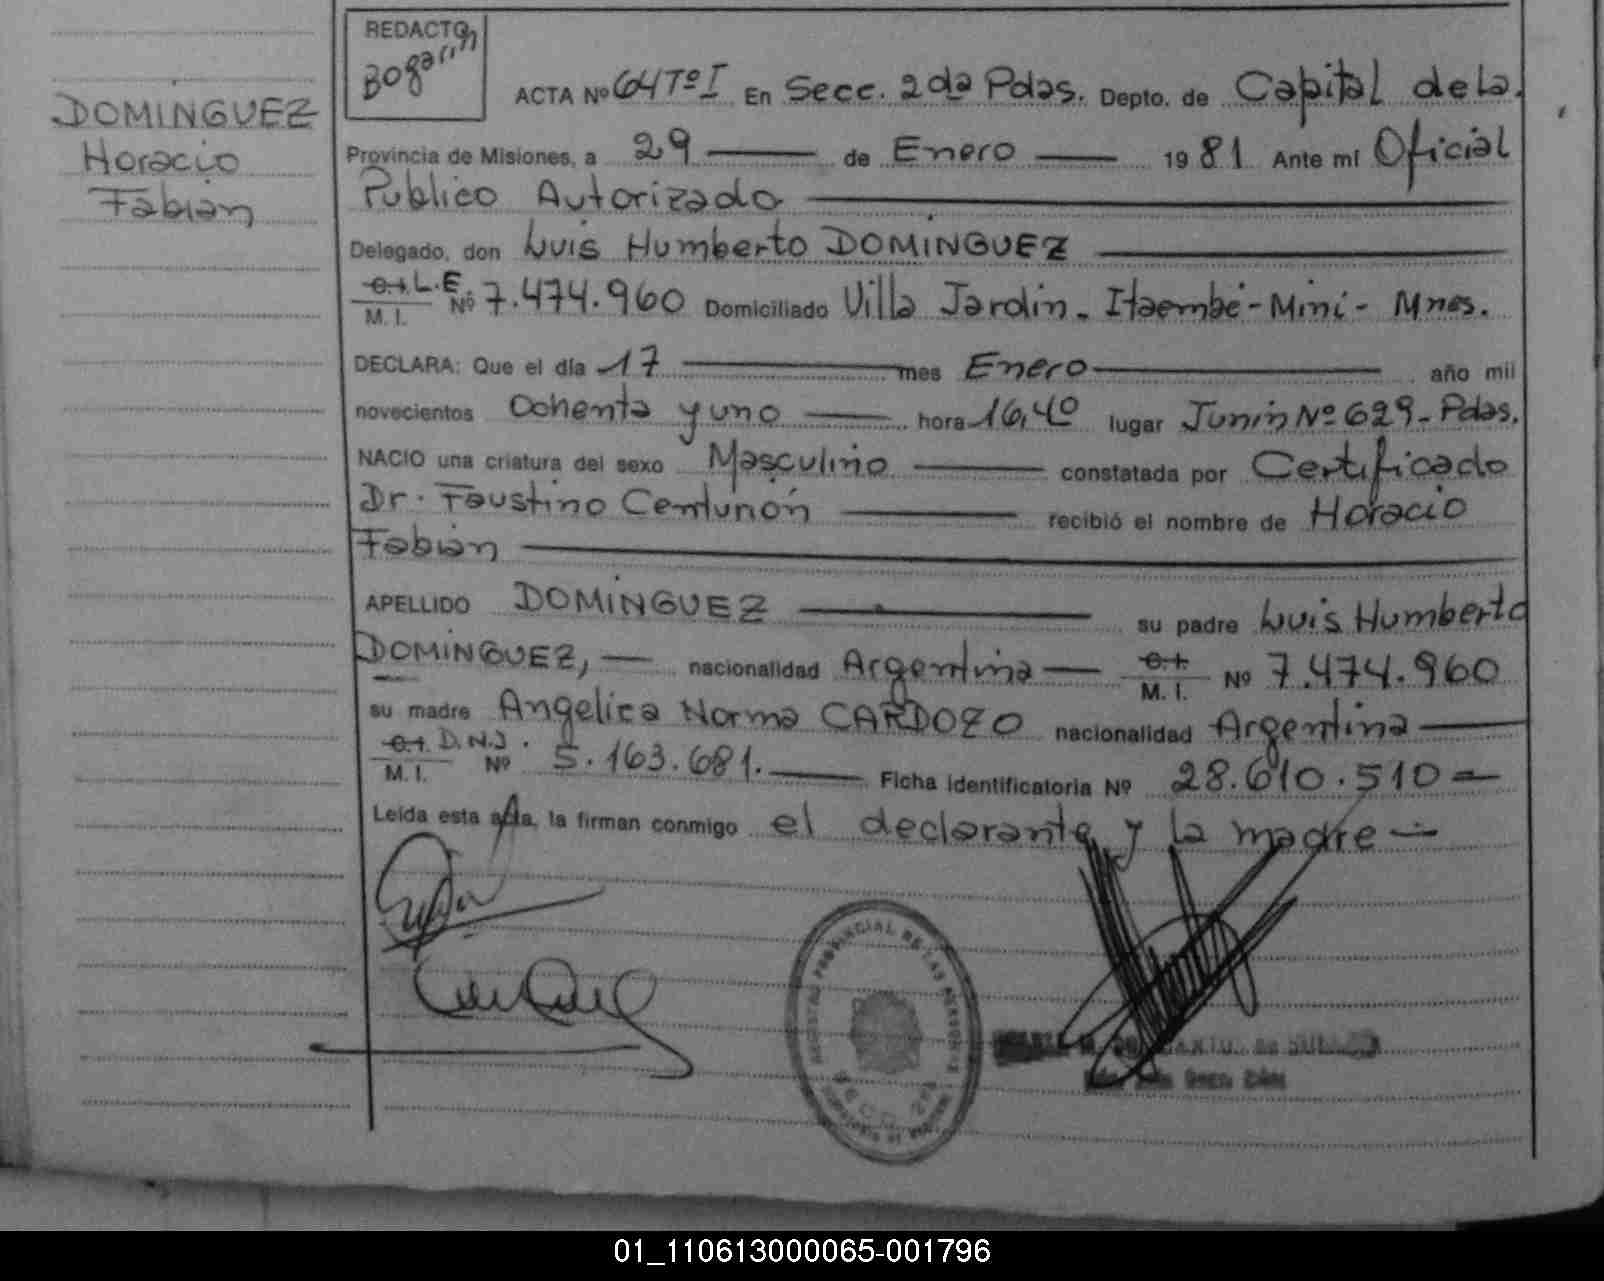 REDACTO
Bogarin
DOMINGUEZ
Horacio
Fabian
ACTA Nº 64 Tº I En Secc. 2da Pdas. Depto. de Capital de la
Provincia de Misiones, a 29 de Enero 1981 Ante mí Oficial
Publico Autorizado
Delegado, don Luis Humberto DOMINGUEZ
C.I. L.E.
M. I. Nº 7.474.960 Domiciliado Villa Jardin - Itaembé - Mini - Mnes.
DECLARA: Que el día 17 mes Enero año mil
novecientos Ochenta y uno hora 16,40 lugar Junin Nº 629 - Pdas.
NACIO una criatura del sexo Masculino constatada por Certificado
Dr. Faustino Centurión recibió el nombre de Horacio
Fabian
APELLIDO DOMINGUEZ su padre Luis Humberto
DOMINGUEZ, nacionalidad Argentina C.I.
M. I. Nº 7.474.960
su madre Angelica Norma CARDOZO nacionalidad Argentina
C.I. D.N.I.
M. I. Nº 5.163.681. Ficha identificatoria Nº 28.610.510
Leída esta acta, la firman conmigo el declarante y la madre
REGISTRO PROVINCIAL DE LAS PERSONAS
01_110613000065-001796